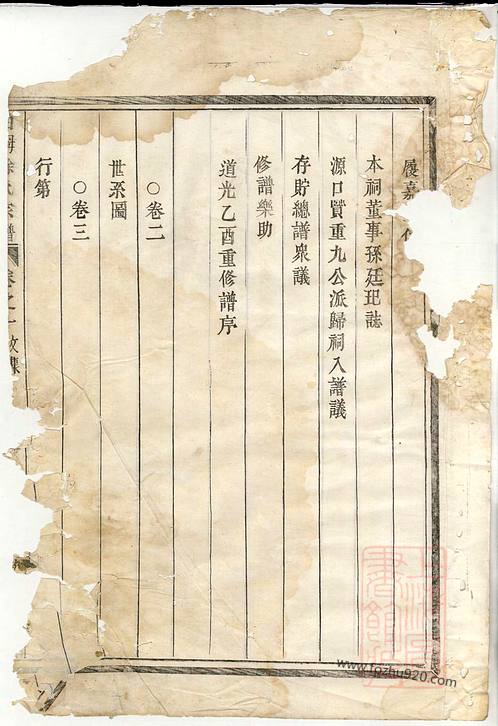 履嘉
本祠董事孫廷玘誌
源口質重九公派歸祠入譜議
存貯總譜衆議
修譜樂助
道光乙酉重修譜序
○卷二
世系圖
○卷三
行第
宗譜
www.fozhu920.com